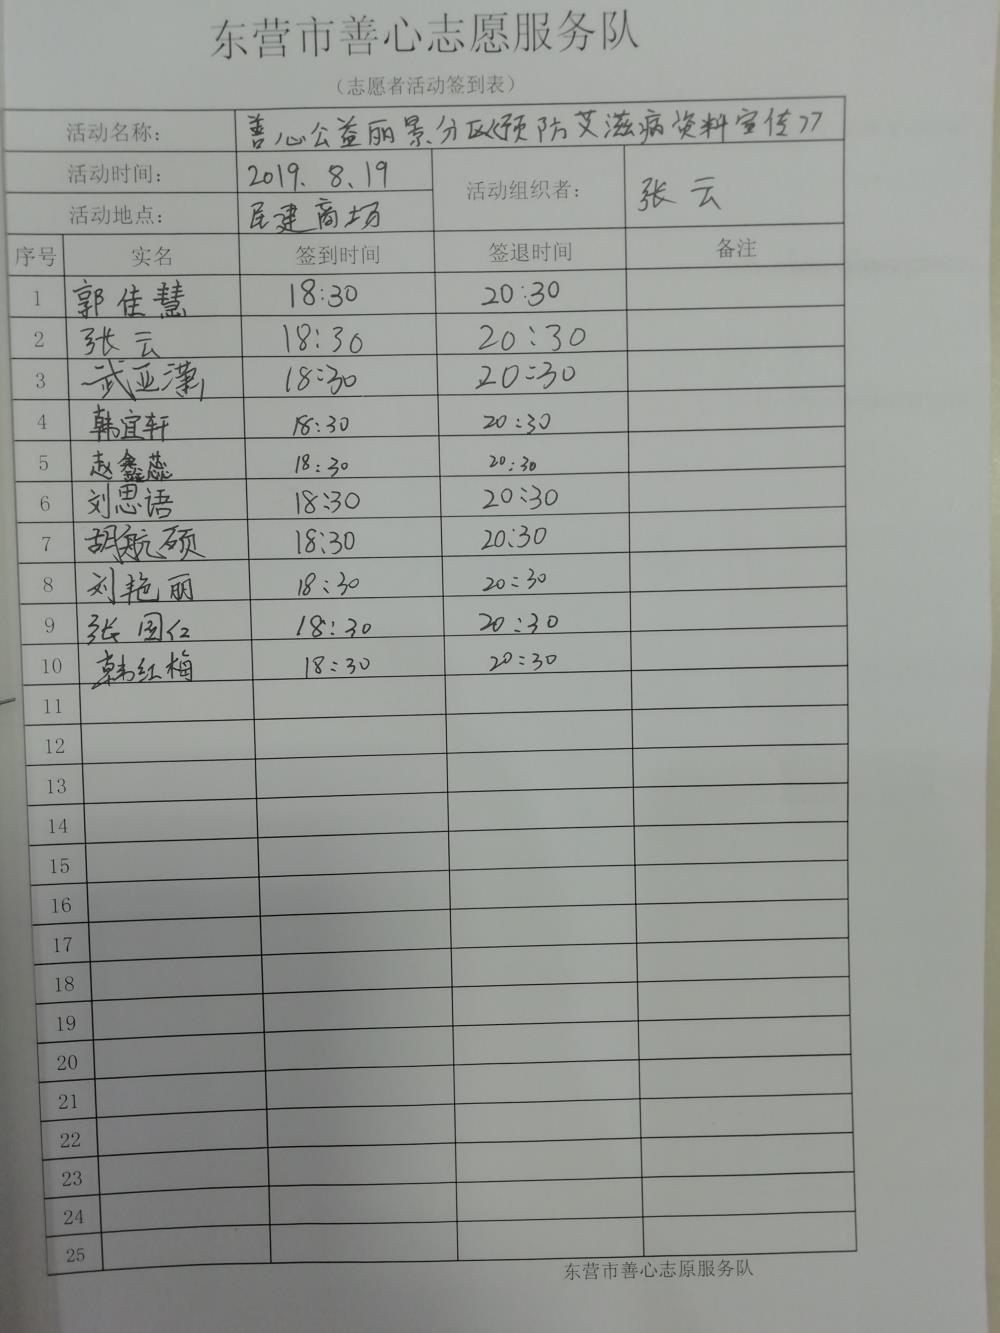 东营市善心志愿服务队
（志愿者活动签到表）
活动名称： 善心公益丽景分区《预防艾滋病资料宣传》
活动时间： 2019.8.19 活动组织者： 张云
活动地点： 民建商场
序号 实名 签到时间 签退时间 备注
1 郭佳慧 18:30 20:30
2 张云 18:30 20:30
3 武亚潇 18:30 20:30
4 韩宜轩 18:30 20:30
5 赵鑫蕊 18:30 20:30
6 刘思语 18:30 20:30
7 胡航硕 18:30 20:30
8 刘艳丽 18:30 20:30
9 张国仁 18:30 20:30
10 韩红梅 18:30 20:30
11
12
13
14
15
16
17
18
19
20
21
22
23
24
25
东营市善心志原服务队